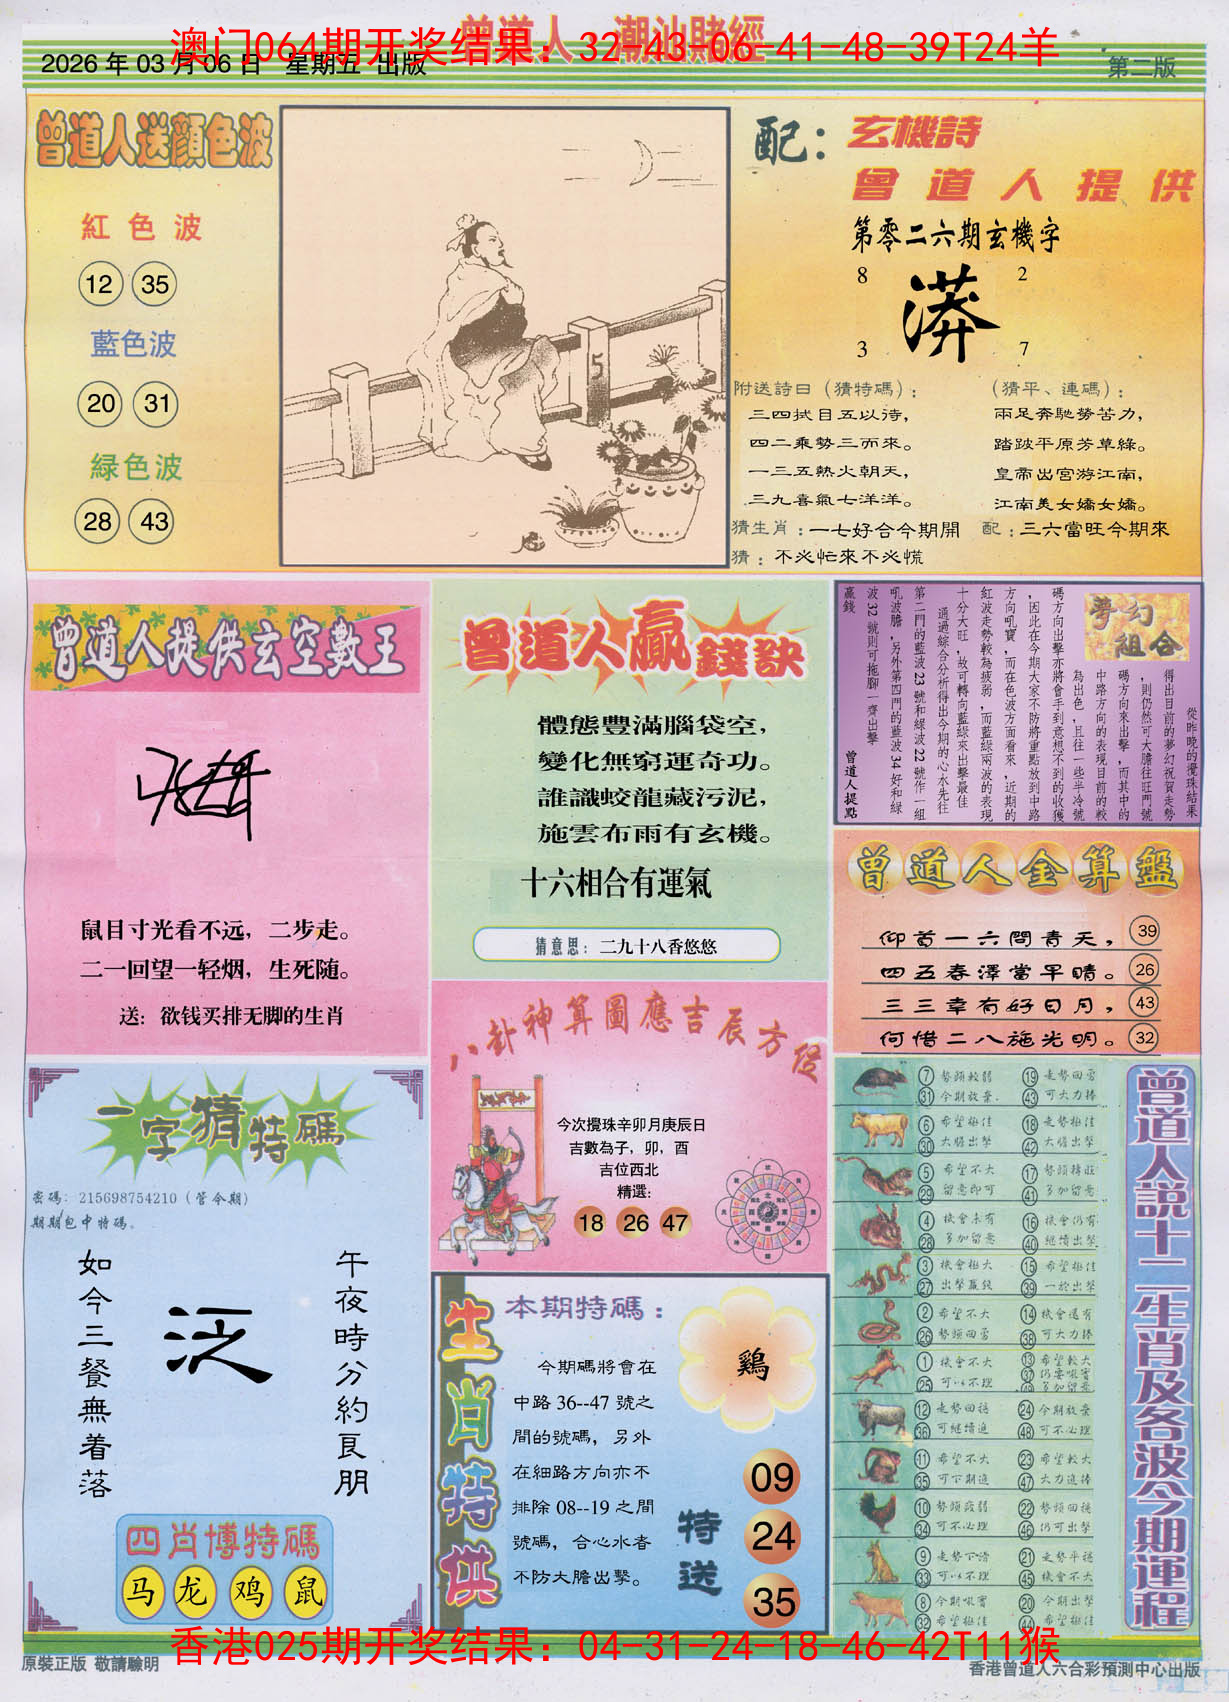 曾道人·潮汕賭經
澳门064期开奖结果：32-43-06-41-48-39T24羊
2026 年 03 月 06 日 星期五 出版
第二版
曾道人送顏色波
紅色波
12 35
藍色波
20 31
緑色波
28 43
5
配：
玄機詩
曾道人提供
第零二六期玄機字
8 2
漭
3 7
附送詩曰（猜特碼）：
三四拭目五以待，
四二乘勢三而來。
一三五熱火朝天，
三九喜氣七洋洋。
（猜平、連碼）：
兩足奔馳勞苦力，
踏跛平原芳草綠。
皇帝出宮游江南，
江南美女嬌女嬌。
猜生肖：一七好合今期開
配：三六當旺今期來
猜：不必忙來不必慌
曾道人提供玄空數王
鼠目寸光看不远，二步走。
二一回望一轻烟，生死随。
送：欲钱买排无脚的生肖
曾道人贏錢訣
體態豐滿腦袋空，
變化無窮運奇功。
誰識蛟龍藏污泥，
施雲布雨有玄機。
十六相合有運氣
猜意思：二九十八香悠悠
夢幻組合
從昨晚的攪珠結果
得出目前的夢幻祝賀走勢
，則仍然可大膽往旺門號
碼方向來出擊，而其中的
中路方向的表現目前的較
為出色，且往一些半冷號
碼方向出擊亦將會手到意想不到的收獲
，因此在今期大家不防將重點放到中路
方向吼寶，而在色波方面看來，近期的
紅波走勢較為疲弱，而藍綠兩波的表現
十分大旺，故可轉向藍綠來出擊最佳
通過綜合分析得出今期的心水先往
第二門的藍波 23 號和綠波 22 號作一組
吼波膽，另外第四門的藍波 34 好和綠
波 32 號則可拖腳一齊出擊
贏錢
曾道人提點
曾道人金算盤
仰首一六問青天， 39
四五春澤當早晴。 26
三三幸有好日月， 43
何惜二八施光明。 32
八卦神算圖應吉辰方位
今次攪珠辛卯月庚辰日
吉數為子，卯，酉
吉位西北
精選：
18 26 47
一字猜特碼
密碼：215698754210（管今期）
期期包中特碼。
午夜時分約良朋
泛
如今三餐無着落
四肖博特碼
马 龙 鸡 鼠
生肖特供
本期特碼：
今期碼將會在
中路 36--47 號之
間的號碼，另外
在細路方向亦不
排除 08--19 之間
號碼，合心水者
不防大膽出擊。
鷄
特送
09
24
35
曾道人說十二生肖及各波今期運程
7 勢頭較弱 19 走勢回勇
31 今期放棄 43 可大力捧
6 希望極佳 18 走勢極佳
30 大膽出擊 42 大膽出擊
5 希望不大 17 勢頭轉旺
29 留意即可 41 多加留意
4 機會未有 16 機會仍有
28 多加留意 40 繼續出擊
3 機會極大 15 希望極佳
27 出擊贏錢 39 一於出擊
2 希望不大 14 機會還有
26 勢頭回勇 38 可大力捧
1 機會不大 13 希望較大
25 可以不理 37 仍要吸實
49 多加留意
12 走勢回穩 24 今期放棄
36 可繼續追 48 可不必理
11 希望不大 23 希望較大
35 可下期追 47 大力追捧
10 勢頭疲弱 22 勢頭回穩
34 可不必理 46 仍可出擊
9 走勢下滑 21 走勢平穩
33 可以不理 45 機會不大
8 今期吸實 20 今期出擊
32 希望極佳 44 希望極佳
香港025期开奖结果：04-31-24-18-46-42T11猴
原裝正版 敬請驗明
香港曾道人六合彩預測中心出版